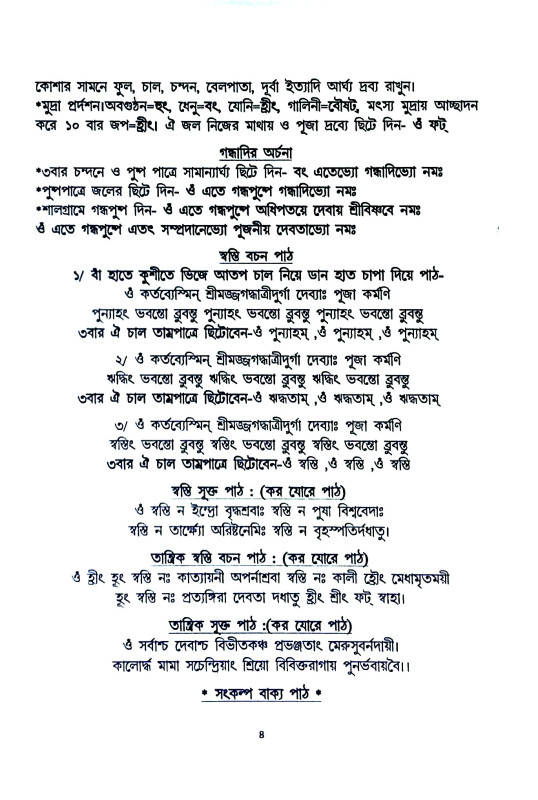 কোশার সামনে ফুল, চাল, চন্দন, বেলপাতা, দূর্বা ইত্যাদি আর্ঘ্য দ্রব্য রাখুন।
*মুদ্রা প্রর্দশন।অবগুন্ঠন=হুং, ধেনু=বং, যোনি=হ্রীং, গালিনী=বৌষট, মৎস্য মুদ্রায় আচ্ছাদন
করে ১০ বার জপ=হ্রীং। ঐ জল নিজের মাথায় ও পূজা দ্রব্যে ছিটে দিন- ওঁ ফট্
গন্ধাদির অর্চনা
*৩বার চন্দনে ও পুষ্প পাত্রে সামান্যার্ঘ্য ছিটে দিন- বং এতেভ্যো গন্ধাদিভ্যো নমঃ
*পুষ্পপাত্রে জলের ছিটে দিন- ওঁ এতে গন্ধপুষ্পে গন্ধাদিভ্যো নমঃ
*শালগ্রামে গন্ধপুষ্প দিন- ওঁ এতে গন্ধপুষ্পে অধিপতয়ে দেবায় শ্রীবিষ্ণবে নমঃ
ওঁ এতে গন্ধপুষ্পে এতৎ সম্প্রদানেভ্যো পূজনীয় দেবতাভ্যো নমঃ
স্বস্তি বচন পাঠ
১/ বাঁ হাতে কুশীতে ভিজে আতপ চাল নিয়ে ডান হাত চাপা দিয়ে পাঠ-
ওঁ কর্তব্যেস্মিন্ শ্রীমজ্জগদ্ধাত্রীদুর্গা দেব্যাঃ পূজা কর্মণি
পুন্যাহং ভবন্তো ব্রুবন্তু পুন্যাহং ভবন্তো ব্রুবন্তু পুন্যাহং ভবন্তো ব্রুবন্তু
৩বার ঐ চাল তাম্রপাত্রে ছিটোবেন-ওঁ পুন্যাহম্ ,ওঁ পুন্যাহম্ ,ওঁ পুন্যাহম্
২/ ওঁ কর্তব্যেস্মিন্ শ্রীমজ্জগদ্ধাত্রীদুর্গা দেব্যাঃ পূজা কর্মণি
ঋদ্ধিং ভবন্তো ব্রুবন্তু ঋদ্ধিং ভবন্তো ব্রুবন্তু ঋদ্ধিং ভবন্তো ব্রুবন্তু
৩বার ঐ চাল তাম্রপাত্রে ছিটোবেন-ওঁ ঋদ্ধতাম্ ,ওঁ ঋদ্ধতাম্ ,ওঁ ঋদ্ধতাম্
৩/ ওঁ কর্তব্যেস্মিন্ শ্রীমজ্জগদ্ধাত্রীদুর্গা দেব্যাঃ পূজা কর্মণি
স্বস্তিং ভবন্তো ব্রুবন্তু স্বস্তিং ভবন্তো ব্রুবন্তু স্বস্তিং ভবন্তো ব্রুবন্তু
৩বার ঐ চাল তাম্রপাত্রে ছিটোবেন-ওঁ স্বস্তি ,ওঁ স্বস্তি ,ওঁ স্বস্তি
স্বস্তি সুক্ত পাঠ : (কর যোরে পাঠ)
ওঁ স্বস্তি ন ইন্দ্রো বৃদ্ধশ্রবাঃ স্বস্তি ন পুষা বিশ্ববেদাঃ
স্বস্তি ন তার্ক্ষ্যো অরিষ্টনেমিঃ স্বস্তি ন বৃহস্পতির্দধাতু।
তান্ত্রিক স্বস্তি বচন পাঠ : (কর যোরে পাঠ)
ওঁ হ্রীং হূং স্বস্তি নঃ কাত্যায়নী অপর্নাশ্রবা স্বস্তি নঃ কালী হ্রৌং মেধামৃতময়ী
হূং স্বস্তি নঃ প্রত্যঙ্গিরা দেবতা দধাতু হ্রীং শ্রীং ফট্ স্বাহা।
তান্ত্রিক সুক্ত পাঠ :(কর যোরে পাঠ)
ওঁ সর্বাশ্চ দেবাশ্চ বিভীতকঞ্চ প্রভঞ্জতাং মেরুসুবর্নদায়ী।
কালোর্দ্ধ মামা সচেন্দ্রিয়াং শ্রিয়ো বিবিক্তরাগায় পুনর্ভবায়বৈ।।
* সংকল্প বাক্য পাঠ *
৪